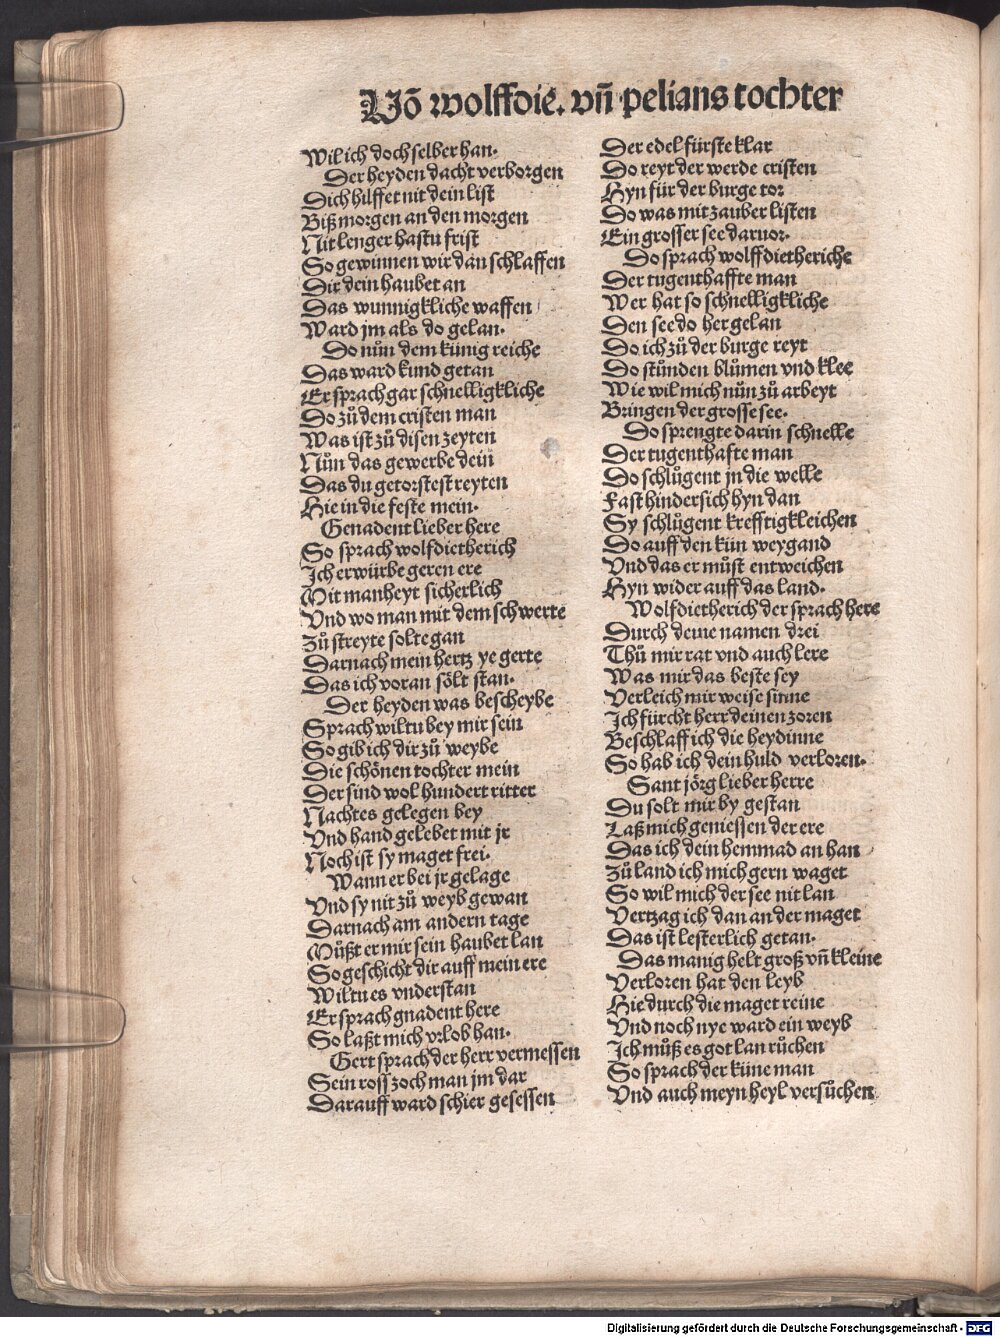 Uõ wolffdie. vñ pelians tochter
Wil ich doch selber han.
Der heyden dacht verborgen
Dich hilffet nit dein list
Biß morgen an den morgen
Nit lenger hastu frist
So gewinnen wir dan schlaffen
Dir dein haubet an
Das wunnigkliche waffen
Ward jm als do gelan.
Do nůn dem künig reiche
Das ward kund getan
Er sprach gar schnelligkliche
Do zů dem cristen man
Was ist zů disen zeyten
Nůn das gewerbe dein
Das du getorstest reyten
Hie in die feste mein.
Genadent lieber here
So sprach wolfdietherich
Ich erwürbe geren ere
Mit manheyt sicherlich
Vnd wo man mit dem schwerte
Zů streyte solte gan
Darnach mein hertz ye gerte
Das ich voran sölt stan.
Der heyden was bescheybe
Sprach wiltu bey mir sein
So gib ich dir zů weybe
Die schönen tochter mein
Der sind wol hundert ritter
Nachtes gelegen bey
Vnd hand gelebet mit jr
Noch ist sy maget frei.
Wann er bei jr gelage
Vnd sy nit zů weyb gewan
Darnach am andern tage
Můßt er mir sein haubet lan
So geschicht dir auff mein ere
Wiltu es vnderstan
Er sprach gnadent here
So laßt mich vrlob han.
Gert sprach der herr vermessen
Sein ross zoch man jm dar
Darauff ward schier gesessen
Der edel fürste klar
Do reyt der werde cristen
Hyn für der burge tor
Do was mit zauber listen
Ein grosser see daruor.
Do sprach wolffdietheriche
Der tugenthaffte man
Wer hat so schnelligkliche
Den see do her gelan
Do ich zů der burge reyt
Do stůnden blůmen vnd klee
Wie wil mich nůn zů arbeyt
Bringen der grosse see.
Do sprengte darin schnelle
Der tugenthafte man
Do schlůgent jn die welle
Fast hindersich hyn dan
Sy schlůgent krefftigkleichen
Do auff den kün weygand
Vnd das er můst entweichen
Hyn wider auff das land.
Wolfdietherich der sprach here
Durch deine namen drei
Thů mir rat vnd auch lere
Was mir das beste sey
Verleich mir weise sinne
Ich fürcht herr deinen zoren
Beschlaff ich die heydinne
So hab ich dein huld verloren.
Sant jörg lieber herre
Du solt mir by gestan
Laß mich geniessen der ere
Das ich dein hemmad an han
Zů land ich mich gern waget
So wil mich der see nit lan
Vertzag ich dan an der maget
Das ist lesterlich getan.
Das manig helt groß vñ kleine
Verloren hat den leyb
Hie durch die maget reine
Vnd noch nye ward ein weyb
Ich můß es got lan růchen
So sprach der küne man
Vnd auch meyn heyl versůchen
Digitalisierung gefördert durch die Deutsche Forschungsgemeinschaft - DFG